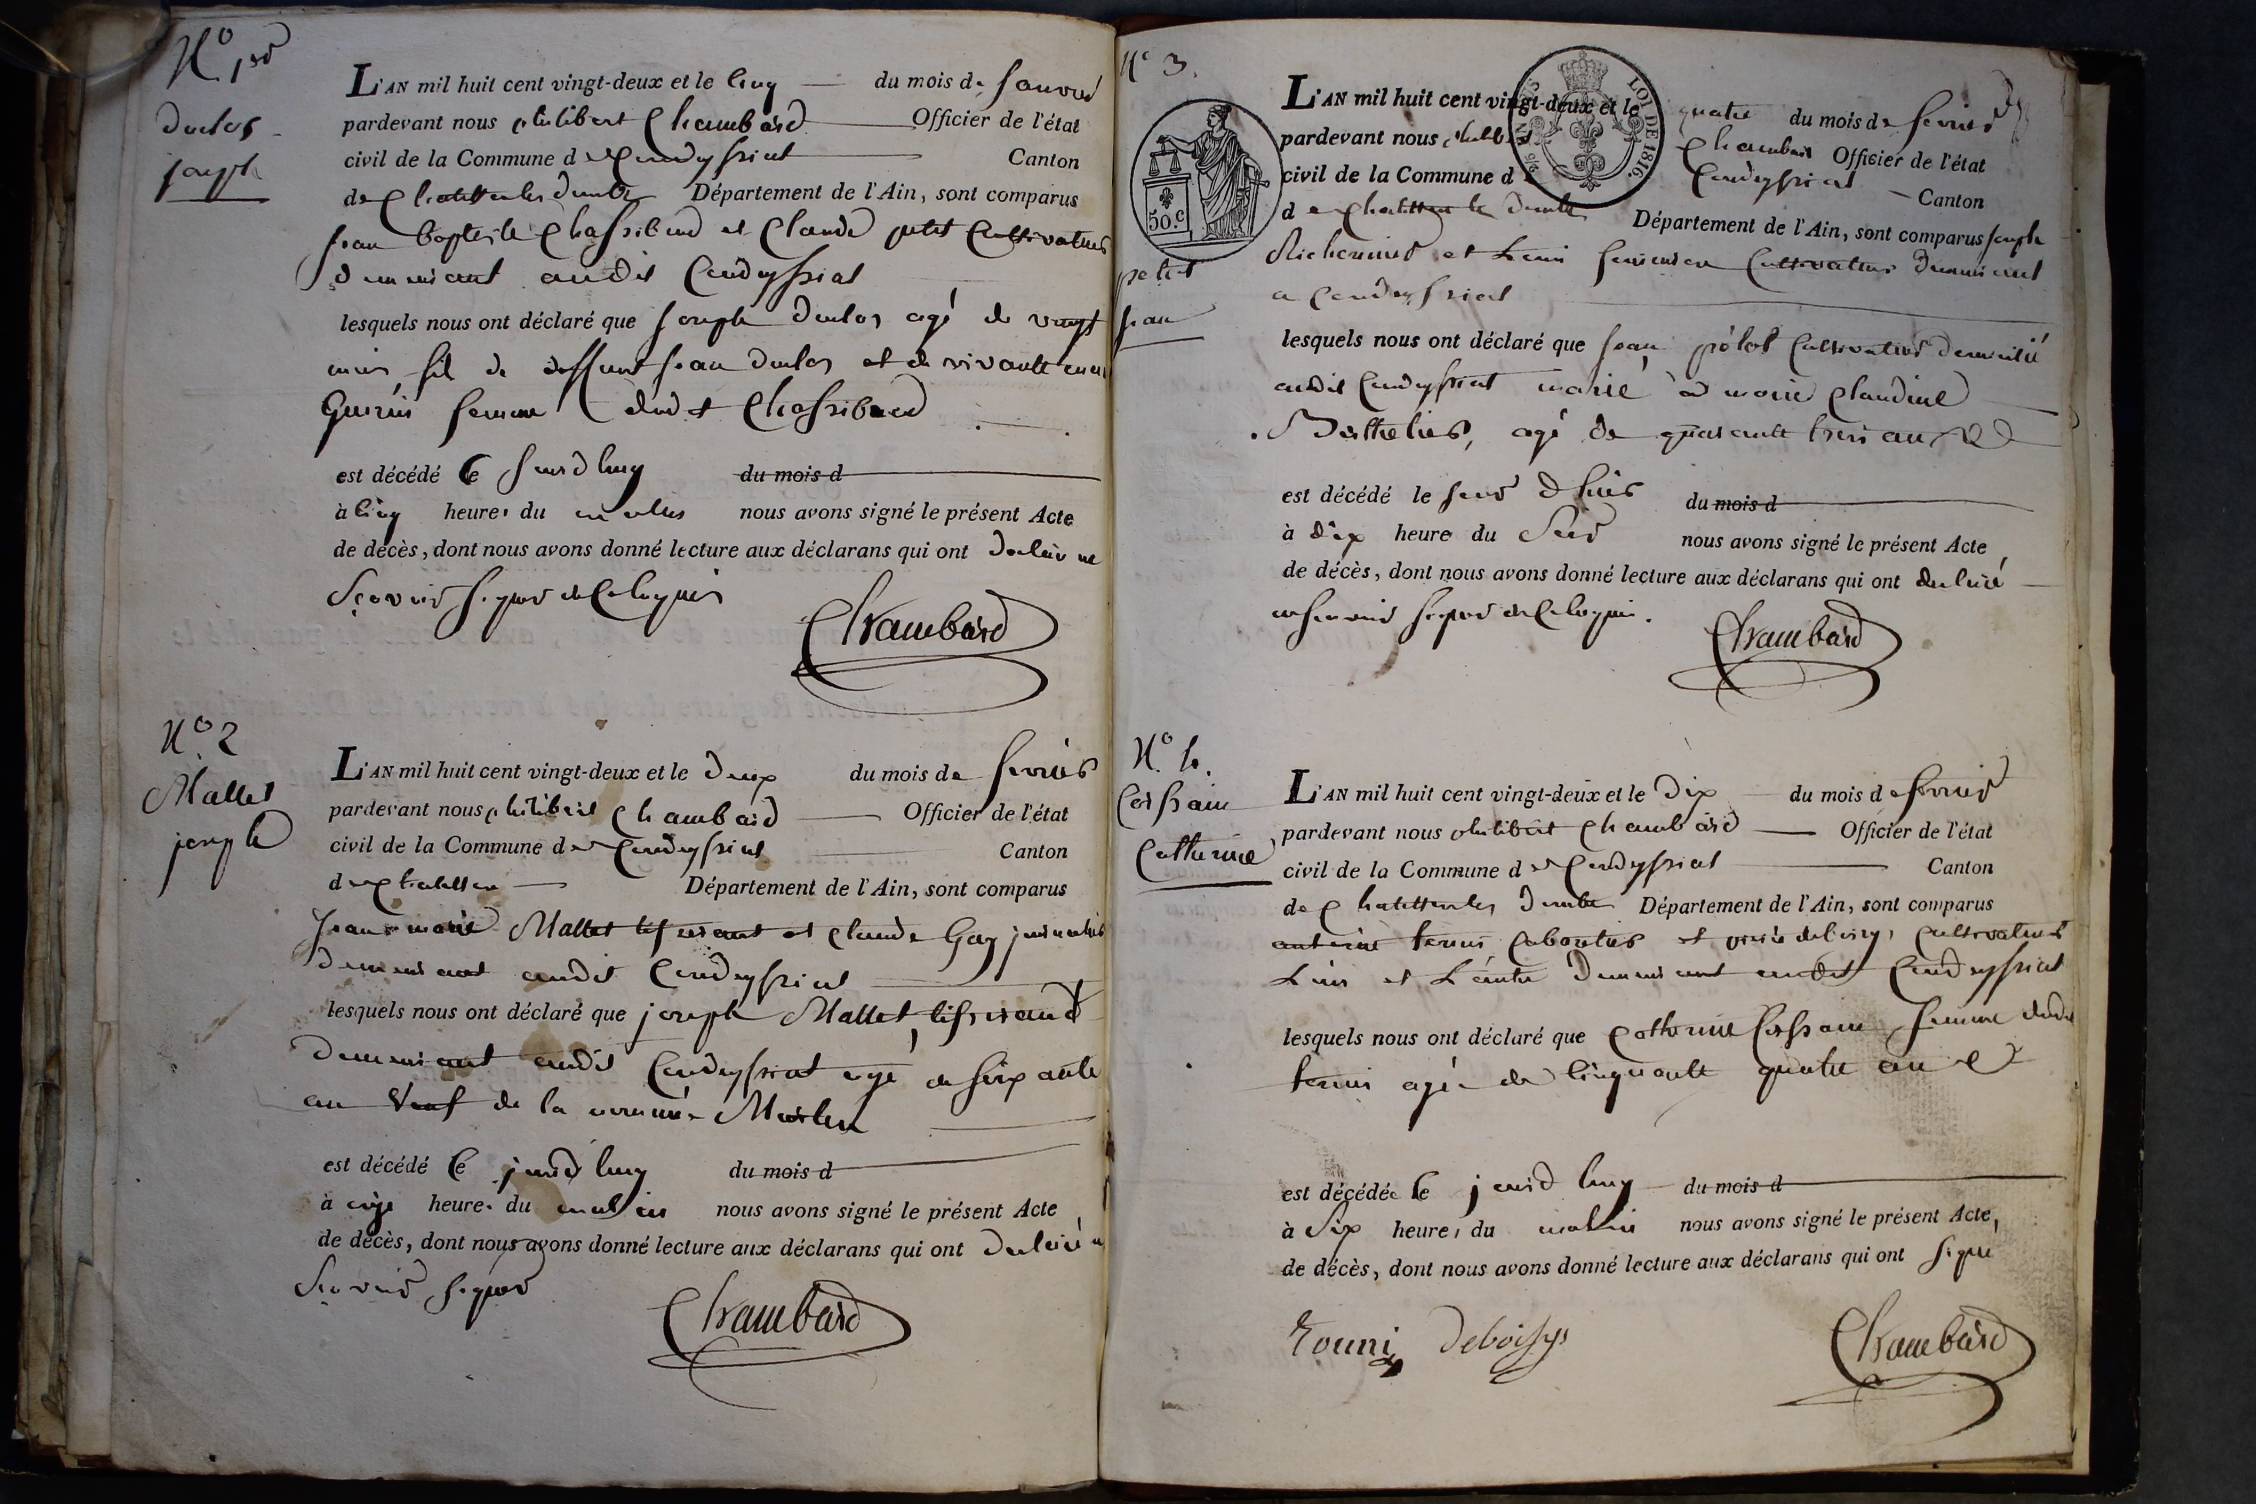 N.º 1er
Duclos
joseph
L'AN mil huit cent vingt-deux et le cinq du mois de janvier
pardevant nous philibert Chambard Officier de l'état
civil de la Commune de Condeyssiat Canton
de Chatillon les Dombes Département de l'Ain, sont comparus
jean baptiste Chassibud et Claude petit Cultivateurs
demeurant audit Condeyssiat
lesquels nous ont déclaré que joseph Duclos agé de vingt
mois fils de deffunt jean Duclos et de vivante
Guerin femme dudit Chassibud
est décédé le jourd'huy du mois d
à cinq heures du matin nous avons signé le présent Acte
de décès, dont nous avons donné lecture aux déclarans qui ont declaré ne
scavoir signer de ce requis
Chambard
N.º 2
Mallet
joseph
L'AN mil huit cent vingt-deux et le deux du mois de fevrier
pardevant nous philibert Chambard Officier de l'état
civil de la Commune de Condeyssiat Canton
de Chatillon Département de l'Ain, sont comparus
jean marie Mallet tisserant et Claude Gay journalier
demeurant audit Condeyssiat
lesquels nous ont déclaré que joseph Mallet, tisserand
demeurant audit Condeyssiat agé de soixante
an veuf de la nommée
est décédé le jourd'huy du mois d
à onze heures du matin nous avons signé le présent Acte
de décès, dont nous avons donné lecture aux déclarans qui ont declaré ne
scavoir signer
Chambard
N.º 3.
petit
jean
50.c
LOI DE 1816.
L'AN mil huit cent vingt-deux et le quatre du mois de fevrier
pardevant nous philibert Chambard Officier de l'état
civil de la Commune de Condeyssiat Canton
de Chatillon les Dombes Département de l'Ain, sont comparus joseph
et Cultivateurs demeurant
a Condeyssiat
lesquels nous ont déclaré que jean petit Cultivateur domicilié
audit Condeyssiat marié a marie Claudine
Berthelier, agé de quarante trois ans
est décédé le jour d'hier du mois d
à dix heure du soir nous avons signé le présent Acte
de décès, dont nous avons donné lecture aux déclarans qui ont declaré
ne scavoir signer de ce requis.
Chambard
N.º 4.
Corssain
Catherine
L'AN mil huit cent vingt-deux et le dix du mois de fevrier
pardevant nous philibert Chambard Officier de l'état
civil de la Commune de Condeyssiat Canton
de Chatillon les Dombes Département de l'Ain, sont comparus
antoine et Cultivateur
l'un et l'autre demeurant audit Condeyssiat
lesquels nous ont déclaré que Catherine Corssain femme dudit
agée de cinquante quatre an
est décédée le jourd'huy du mois d
à six heures du matin nous avons signé le présent Acte,
de décès, dont nous avons donné lecture aux déclarans qui ont signé
Chambard